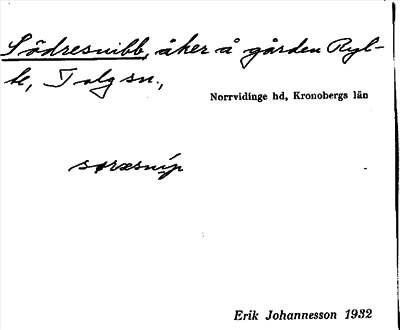 Södresnibb, åker å gården Ryl-
le, Tolg sn.,
Norrvidinge hd, Kronobergs län
sørəsnip
Erik Johannesson 1932